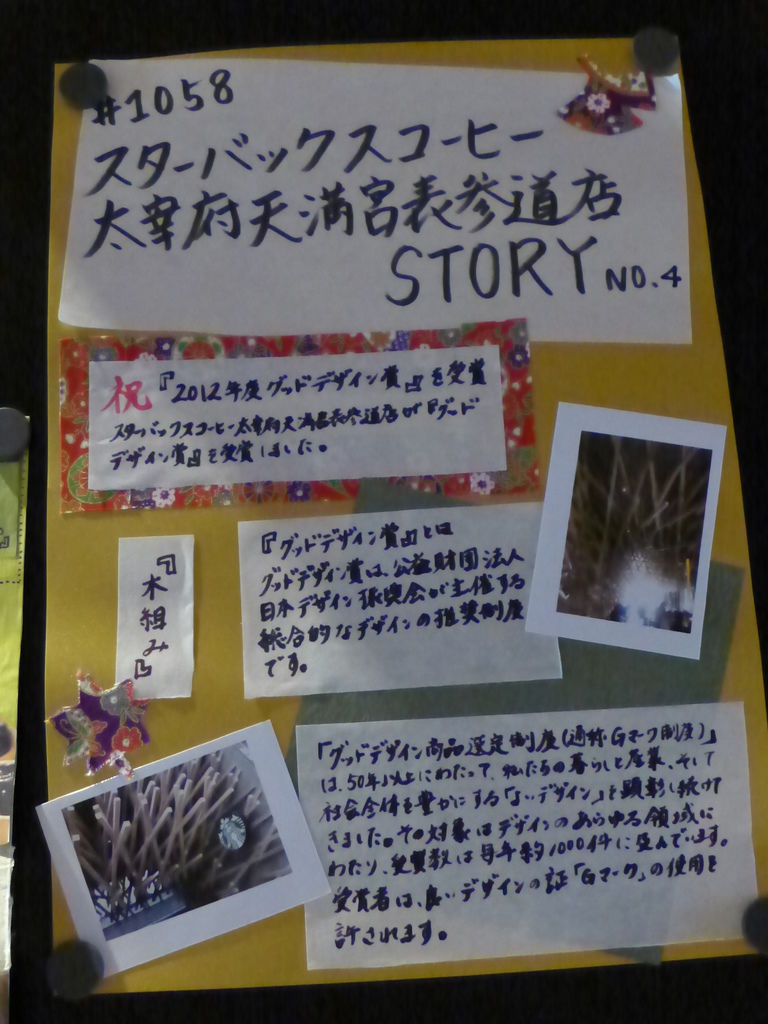 #1058
スターバックスコーヒー
太宰府天満宮表参道店
STORY NO.4
祝『2012年度グッドデザイン賞』を受賞
スターバックスコーヒー太宰府天満宮表参道店が『グッド
デザイン賞』を受賞しました。
『グッドデザイン賞』とは
グッドデザイン賞は、公益財団法人
日本デザイン振興会が主催する
総合的なデザインの推奨制度
です。
『木組み』
「グッドデザイン商品選定制度(通称Gマーク制度)」
は、50年以上にわたって、私たちの暮らしと産業、そして
社会全体を豊かにする「よいデザイン」を顕彰し続けて
きました。その対象はデザインのあらゆる領域に
わたり、受賞数は毎年約1000件に並んでいます。
受賞者は、良いデザインの証「Gマーク」の使用を
許されます。